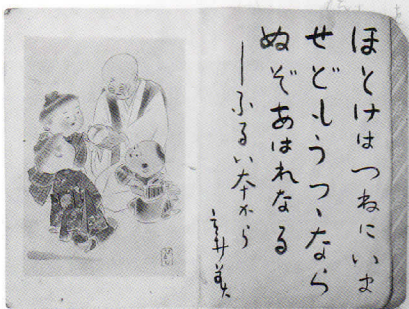 ほとけはつねにいま
せどもうつゝなら
ぬぞあはれなる
―ふるい本から